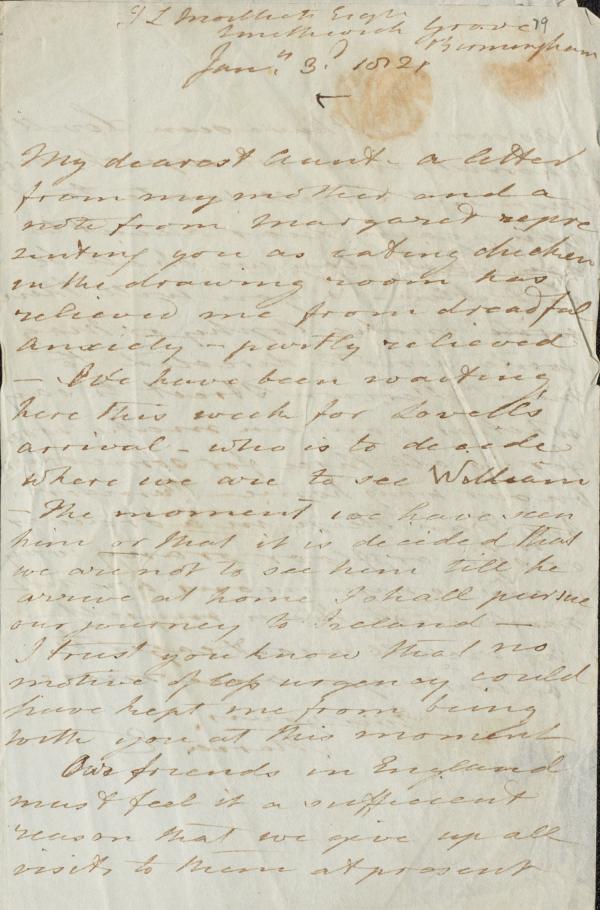 J L Moilliet Esqr 79
Smethwick Grove
Birmingham
Jany. 3d. 1821
My dearest Aunt - a letter
from my mother and a
note from Margaret repre
senting you as eating chicken
in the drawing room has
relieved me from dreadful
anxiety - partly relieved
- We have been waiting
here this week for Lovell's
arrival - who is to decide
where we are to see William
- The moment we have seen
him or that it is decided that
we are not to see him till he
arrive at home I shall pursue
our journey to Ireland -
I trust you know that no
motive of less urgency could
have kept me from being
with you at this moment
Our friends in England
must feel it a sufficient
reason that we give up all
visits to them at present